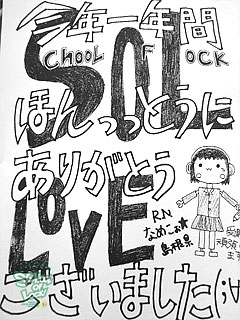 今年一年間
SOL
CHOOL OF LOCK
ほんっっとうに
ありがとう
LOVE
R.N
なめこお★
島根県
ございました(;∀